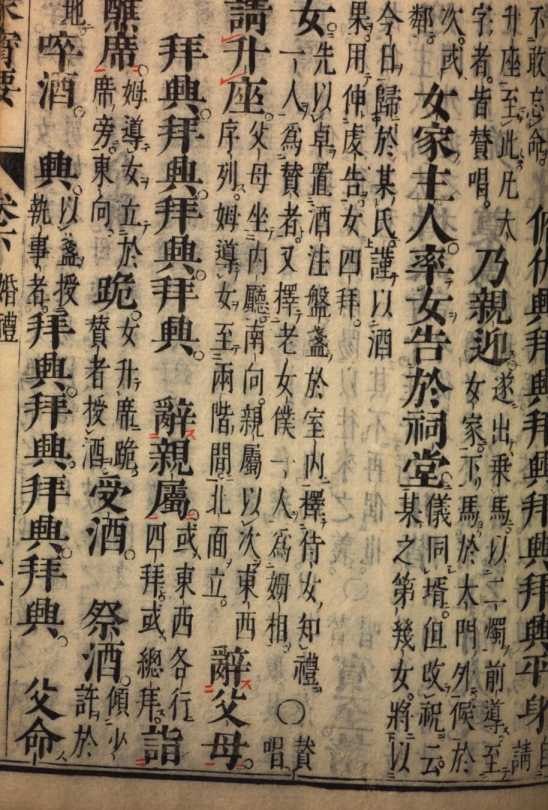 不敢忘命。俯伏興拜興拜興拜興拜興平身
升座至此凡大
字者皆賛唱。乃親迎遂出乘馬以二燭前導至
女家下馬於大門外候於
次。或
鄰。女家主人率女告於祠堂。儀同壻但改祝云
某之第幾女將以
今日歸於某氏謹以酒
果用伸虔告女四拜。
女。先以卓置酒注盤盞於室内擇侍女知禮
一人為賛者又擇老女僕一人為姆相〇賛
唱
請升座。父母坐内廳南向親屬以次東西
序列姆導女至兩階間北面立。辭父母。
拜興拜興拜興拜興。辭親屬。或東西各行
四拜或總拜。詣
醮席。姆導女立於
席旁東向跪。女升席跪
賛者授酒受酒。祭酒。傾少
許於
地。啐酒。興。以盞授
執事者。拜興拜興拜興拜興。父命
婚禮